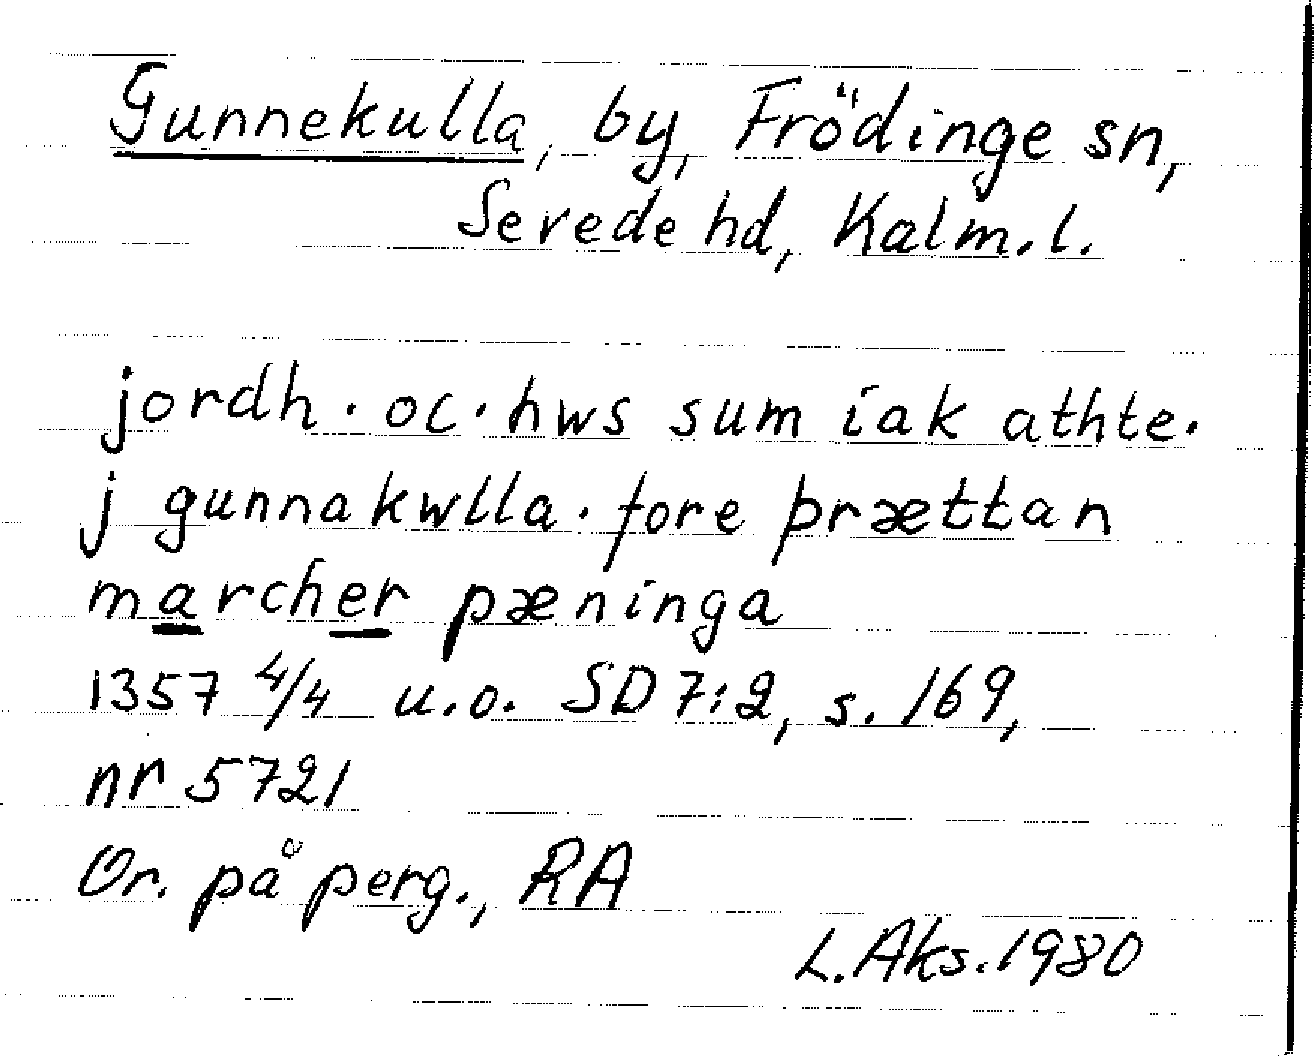 Gunnekulla, by, Frödinge sn,
Sevede hd, Kalm. l.
jordh · oc · hws sum iak athte.
j gunnakwlla · fore þrættan
marcher pæninga
1357 4/4 u.o. SD 7:2, s. 169,
nr 5721
Or. på perg., RA
L. Aks. 1980